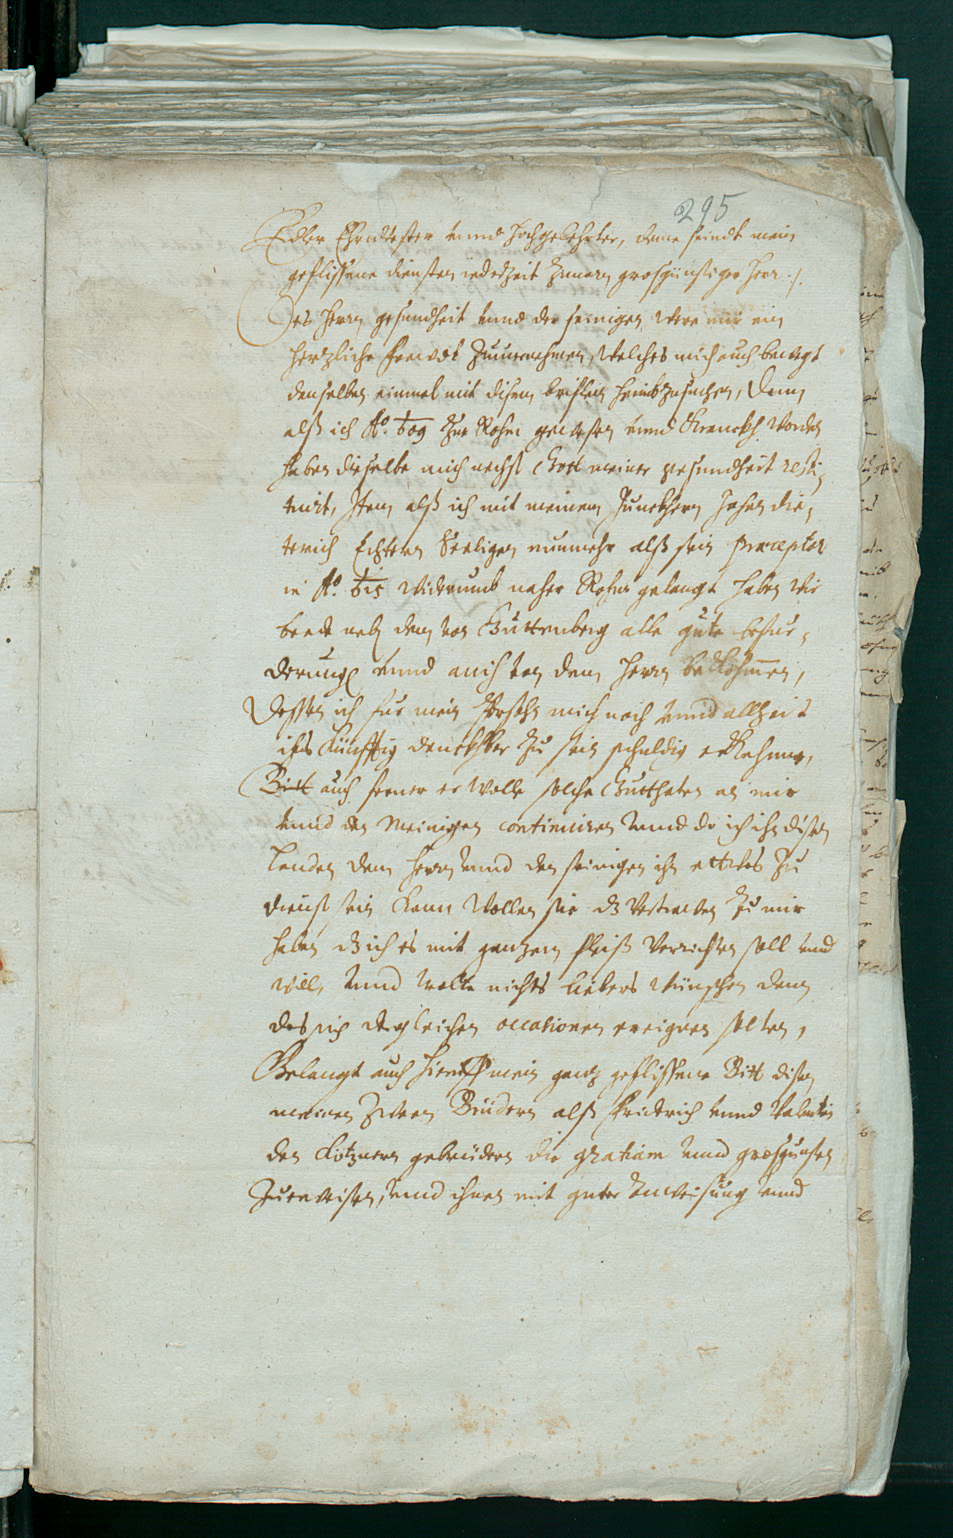 295
Edler Ehrnvester unnd Hochgelehrter, deme seindt mein
geflissene diensten iederzeit zuuorn grosgünstiger Herr ./.
Des Herrn gesundheit unnd der seinigen, were mir ein
hertzliche freudt zuuernehmen, Welches mich auch bewegt
denselben einmal mit disem brifflein heimbzusuchen, Dann
alß ich Aō. 609 zue Rohm gewesen unnd Kranckh worden
haben dieselbe mich nechst Gott meiner gesundheit resti,
tuirt, Item alß ich mit meinem Junckhern Johan Die,
terich Echtern Seeligen nunmehr alß sein praeceptor
in Aō. 615 widerumb naher Rohm gelangt haben wir
beede neb dem von Guttenberg alle güte befür,
derung unnd auch von dem Herrn bekohmen,
Dessen ich für mein Persohn mich noch unnd allzeit
ins künfftig danckhbar zu sein schuldig erkehnne,
Bitt auch ferner er wolle solche Gutthaten an mir
unnd den Meinigen continuiren unnd do ich in disen
Landen dem Herrn unnd den seinigen in etwas zu
dienst sein kann wollen sie dz vertrawen zu mir
haben dz ich es mit gantzem fleiß verrichten soll unnd
will, unnd wolte nichts liebers wünschen dann
das sich dergleichen occasionen ereignen solten,
Gelangt auch hiemit mein gantz geflissene Bitt disen
meinen zween Brüdern alß Friderich unnd Valentin
den Kötznern gebrüdern die gratiam unnd grosgunsten
zuerweisen, unnd ihnen mit guter Anweisung unnd